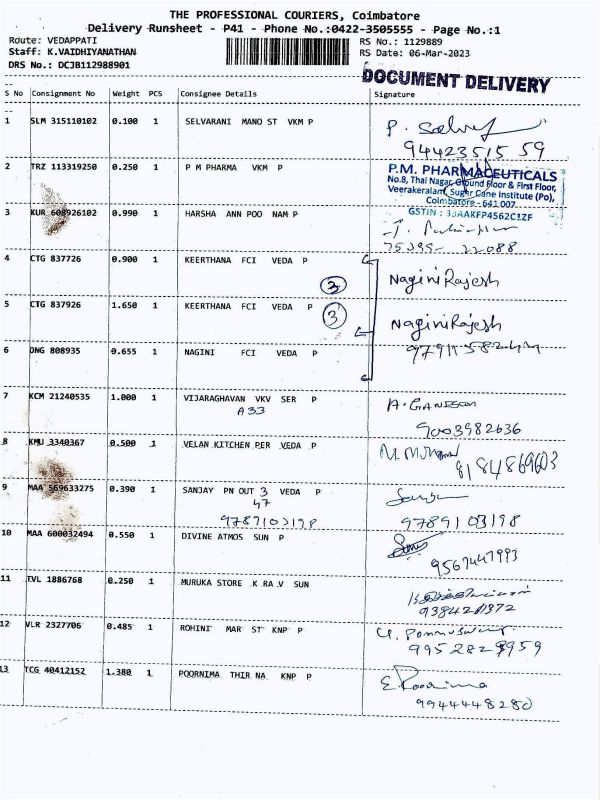 THE PROFESSIONAL COURIERS, Coimbatore
Delivery Runsheet - P41 - Phone No.:0422-3505555 - Page No.:1
Route: VEDAPPATI RS No.: 1129889
Staff: K.VAIDHIYANATHAN RS Date: 06-Mar-2023
DRS No.: DCJB112988901
DOCUMENT DELIVERY
S No Consignment No Weight PCS Consignee Details Signature
1 SLM 315110102 0.100 1 SELVARANI MANO ST VKM P
94423515 59
2 TRZ 113319250 0.250 1 P M PHARMA VKM P
P.M. PHARMACEUTICALS
No.8, Thai Nagar, Ground Floor & First Floor,
Veerakeralam, Sugar Cane Institute (Po),
Coimbatore - 641 007
GSTIN : 33AAKFP4562C1ZF
3 KUR 608926102 0.990 1 HARSHA ANN POO NAM P
4 CTG 837726 0.900 1 KEERTHANA FCI VEDA P
3 Nagini Rajesh
5 CTG 837926 1.650 1 KEERTHANA FCI VEDA P
3 Nagini Rajesh
6 ONG 808935 0.655 1 NAGINI FCI VEDA P
7 KCM 21240535 1.000 1 VIJARAGHAVAN VKV SER P
A33 A. GANESAN
9003982636
8 KMU 3340367 0.500 1 VELAN KITCHEN PER VEDA P
8184869603
9 MAA 569633275 0.390 1 SANJAY PN OUT 3 VEDA P
47
9789103198 9789103198
10 MAA 600032494 0.550 1 DIVINE ATMOS SUN P
9567447993
11 IVL 1886768 0.250 1 MURUKA STORE K.RA.V SUN
12 VLR 2327706 0.485 1 ROHINI MAR ST KNP P
13 TCG 40412152 1.380 1 POORNIMA THIR NA KNP P
E Poornima
9944448280